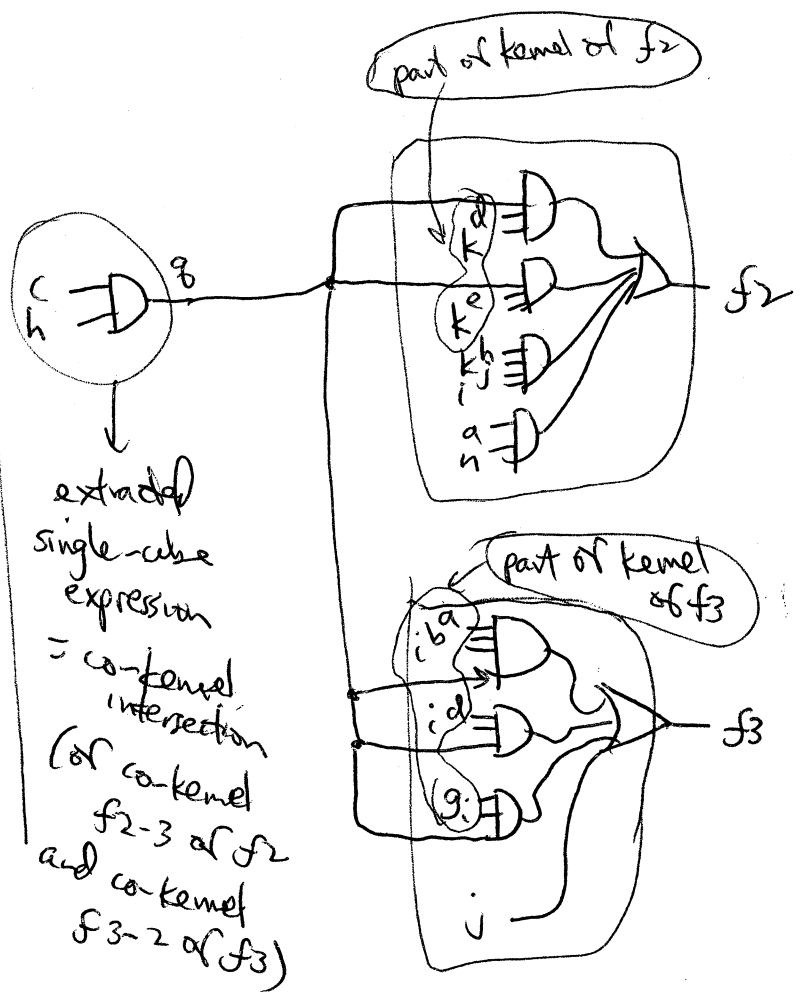 part of kernel of f2
d
k
e
k
b
kj
i
a
h
f2
c
h
q
extracted
single-cube
expression
= co-kernel
intersection
(of co-kernel
f2-3 of f2
and co-kernel
f3-2 of f3)
part of kernel
of f3
a
b
i
d
i
g
i
j
f3